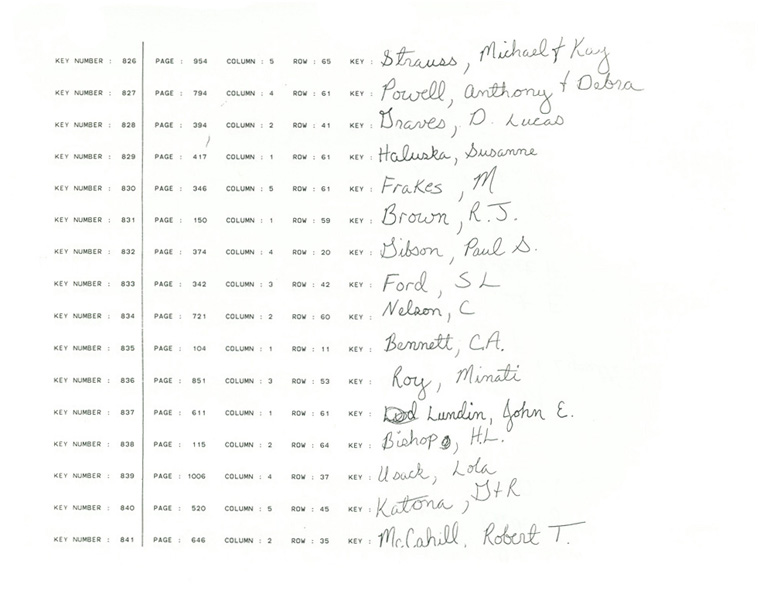 KEY NUMBER : 826 PAGE : 954 COLUMN : 5 ROW : 65 KEY : Strauss, Michael & Kay
KEY NUMBER : 827 PAGE : 794 COLUMN : 4 ROW : 61 KEY : Powell, Anthony & Debra
KEY NUMBER : 828 PAGE : 394 COLUMN : 2 ROW : 41 KEY : Graves, D. Lucas
KEY NUMBER : 829 PAGE : 417 COLUMN : 1 ROW : 61 KEY : Haluska, Susanne
KEY NUMBER : 830 PAGE : 346 COLUMN : 5 ROW : 61 KEY : Frakes, M
KEY NUMBER : 831 PAGE : 150 COLUMN : 1 ROW : 59 KEY : Brown, R.J.
KEY NUMBER : 832 PAGE : 374 COLUMN : 4 ROW : 20 KEY : Gibson, Paul S.
KEY NUMBER : 833 PAGE : 342 COLUMN : 3 ROW : 42 KEY : Ford, S L
KEY NUMBER : 834 PAGE : 721 COLUMN : 2 ROW : 60 KEY : Nelson, C
KEY NUMBER : 835 PAGE : 104 COLUMN : 1 ROW : 11 KEY : Bennett, C.A.
KEY NUMBER : 836 PAGE : 851 COLUMN : 3 ROW : 53 KEY : Roy, Minati
KEY NUMBER : 837 PAGE : 611 COLUMN : 1 ROW : 61 KEY : Lundin, John E.
KEY NUMBER : 838 PAGE : 115 COLUMN : 2 ROW : 64 KEY : Bishop, H.L.
KEY NUMBER : 839 PAGE : 1006 COLUMN : 4 ROW : 37 KEY : Usack, Lola
KEY NUMBER : 840 PAGE : 520 COLUMN : 5 ROW : 45 KEY : Katona, G & R
KEY NUMBER : 841 PAGE : 646 COLUMN : 2 ROW : 35 KEY : McCahill, Robert T.